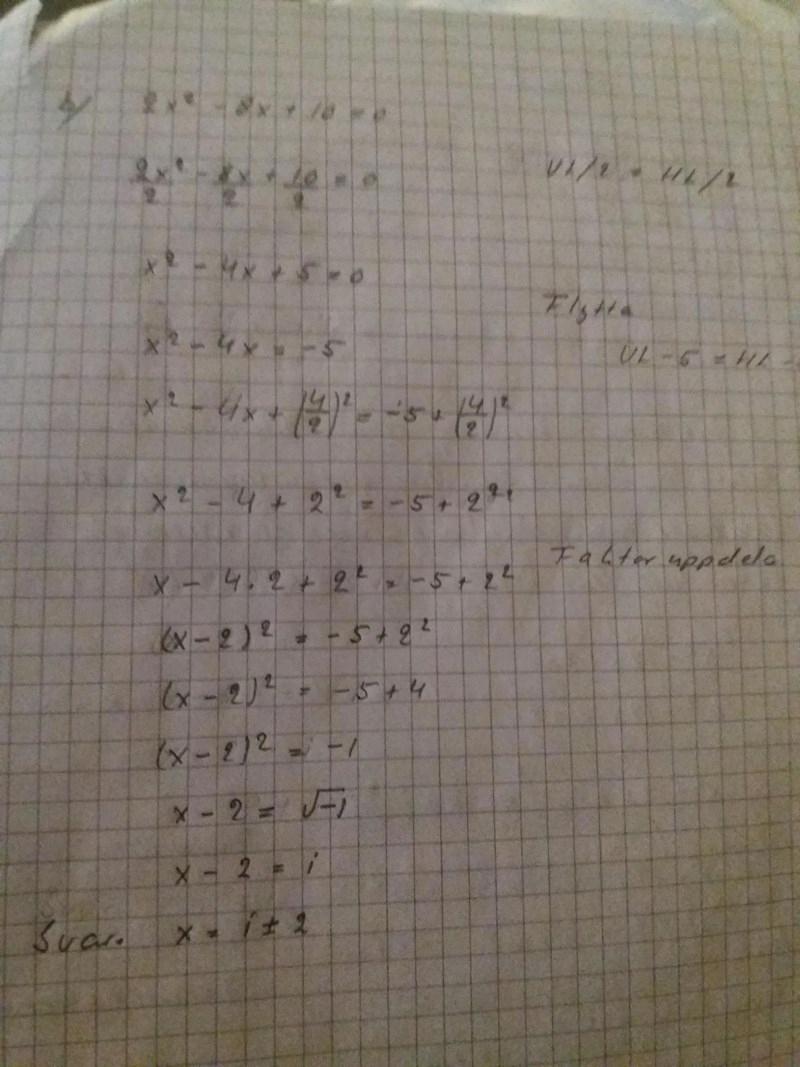 b) 2x² - 8x + 10 = 0
2x²/2 - 8x/2 + 10/2 = 0 VL/2 = HL/2
x² - 4x + 5 = 0
Flytta
x² - 4x = -5
VL - 5 = HL -
x² - 4x + (4/2)² = -5 + (4/2)²
x² - 4 + 2² = -5 + 2²
Faktoruppdela
x - 4·2 + 2² = -5 + 2²
(x - 2)² = -5 + 2²
(x - 2)² = -5 + 4
(x - 2)² = -1
x - 2 = √-1
x - 2 = i
Svar. x = i ± 2